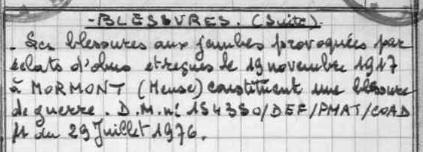 - BLESSURES. (Suite).
. Ses blessures aux jambes provoquées par
éclats d'obus et reçues le 19 novembre 1917
à MORMONT (Meuse) constituent une blessure
de guerre. D.M. n° 154350/DEF/PMAT/COAD
du 29 Juillet 1976.